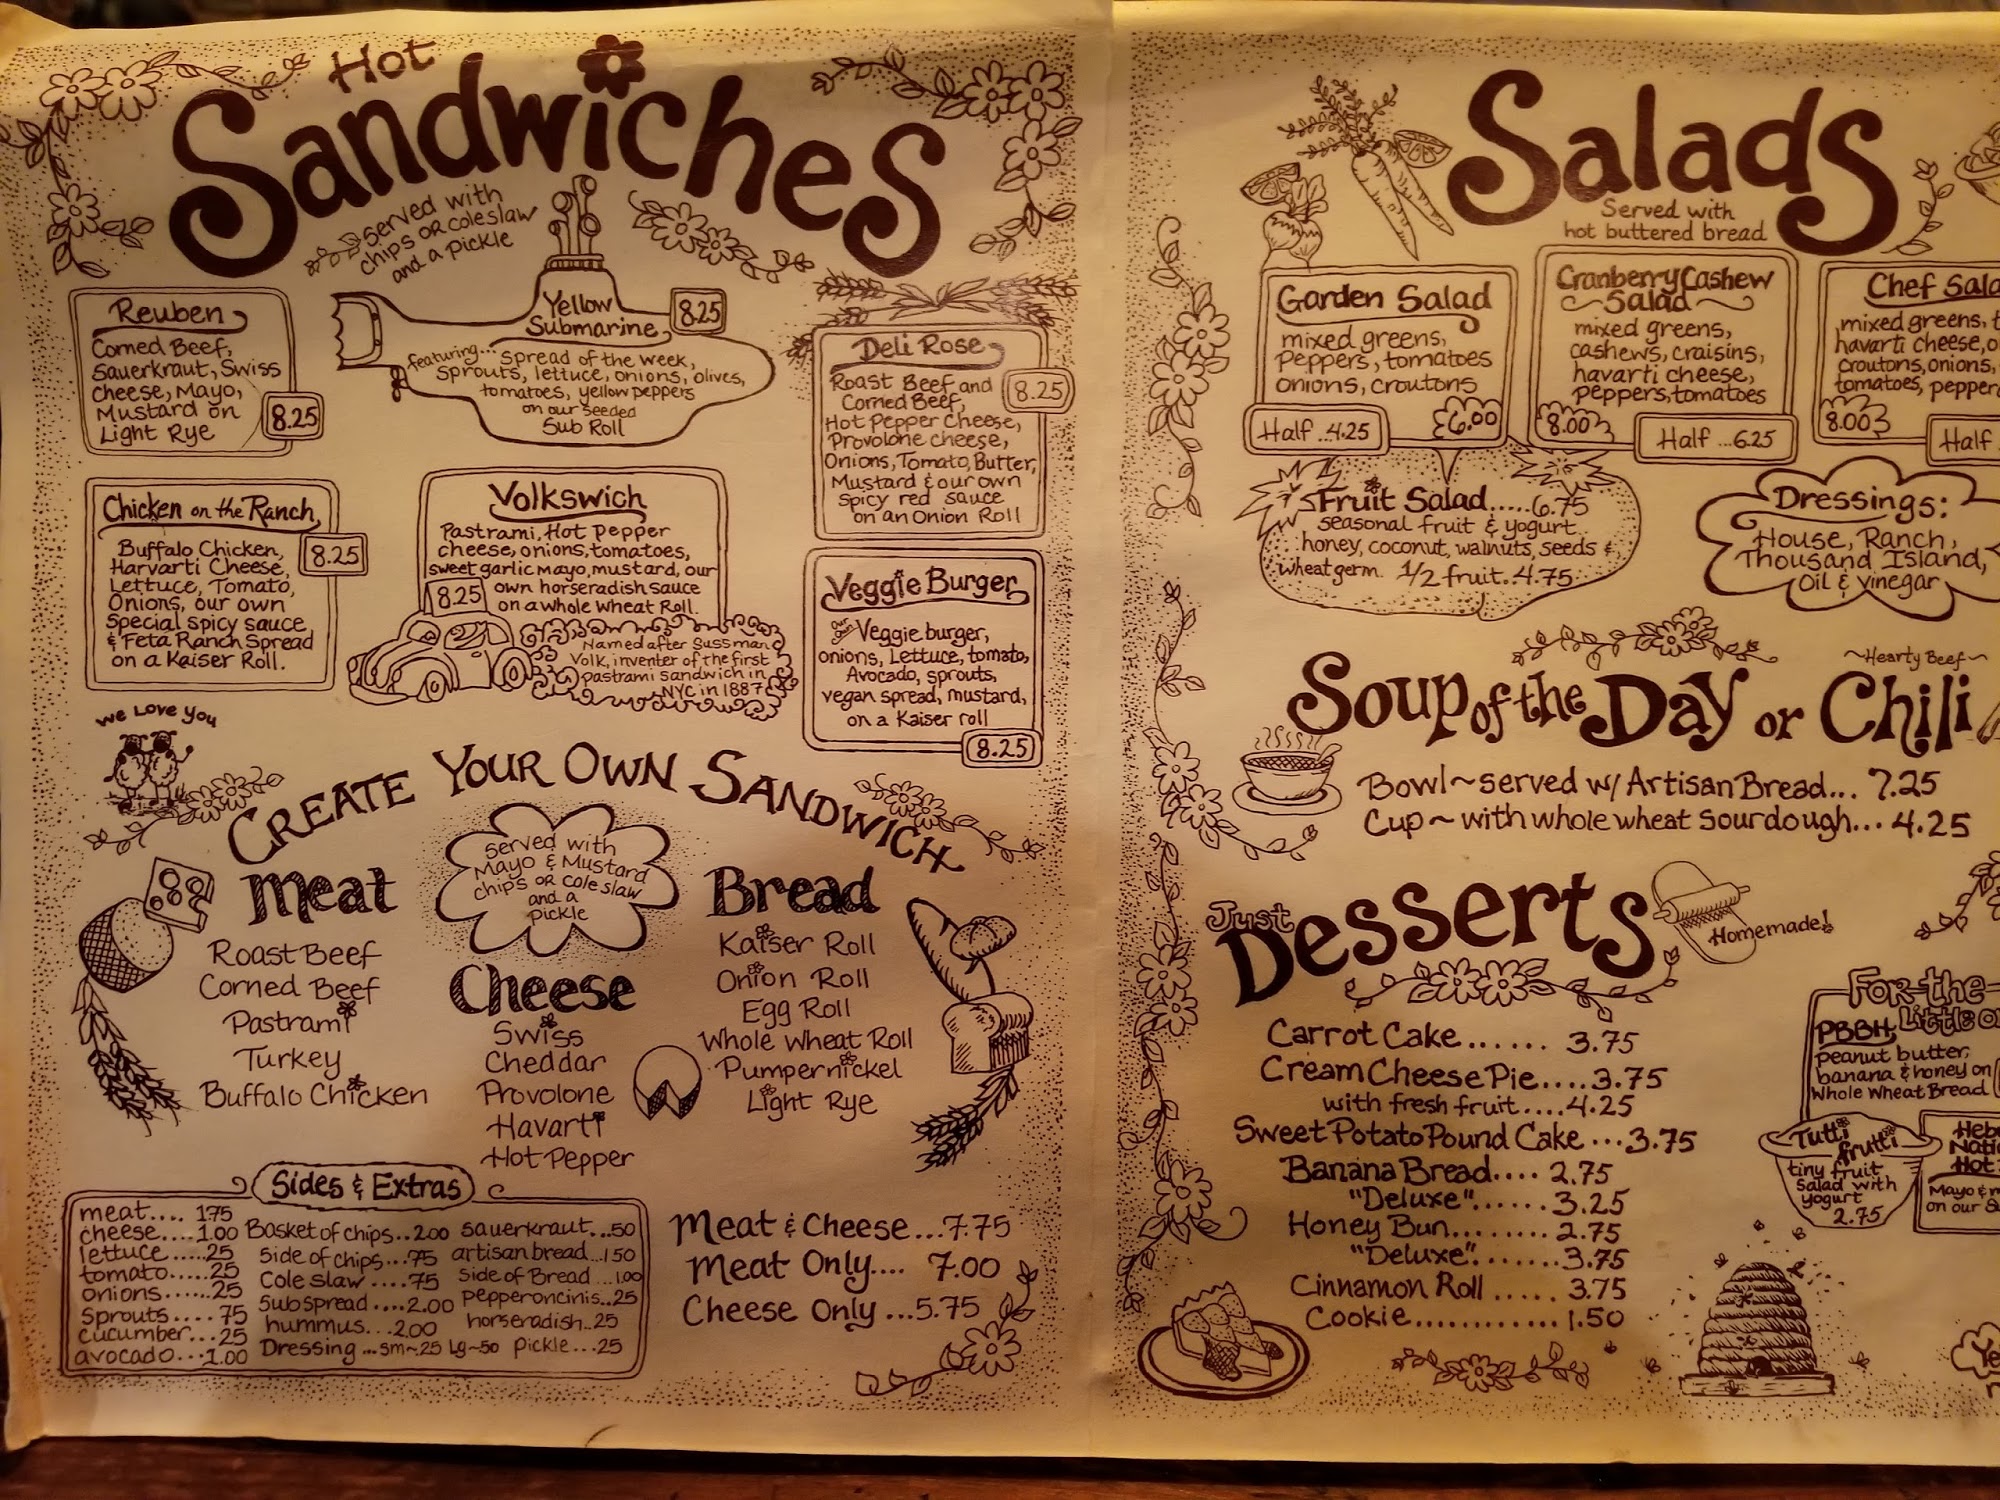 Hot
Sandwiches
served with
chips OR coleslaw
and a pickle
Reuben
Corned Beef,
Sauerkraut, Swiss
cheese, Mayo,
Mustard on
Light Rye
8.25
Yellow
Submarine
8.25
featuring... spread of the week,
sprouts, lettuce, onions, olives,
tomatoes, yellow peppers
on our seeded
Sub Roll
Deli Rose
Roast Beef and
Corned Beef,
Hot Pepper Cheese,
Provolone cheese,
Onions, Tomato, Butter,
Mustard & our own
spicy red sauce
on an Onion Roll
8.25
Chicken on the Ranch
Buffalo Chicken,
Harvarti Cheese,
Lettuce, Tomato,
Onions, our own
Special spicy sauce
& Feta Ranch Spread
on a Kaiser Roll.
8.25
Volkswich
Pastrami, Hot Pepper
cheese, onions, tomatoes,
sweet garlic mayo, mustard, our
own horseradish sauce
on a whole wheat Roll.
8.25
Named after Sussman
Volk, inventer of the first
pastrami sandwich in
NYC in 1887
Veggie Burger
our own Veggie burger,
onions, Lettuce, tomato,
Avocado, sprouts,
vegan spread, mustard,
on a Kaiser roll
8.25
We Love You
Create Your Own Sandwich
served with
Mayo & Mustard
chips OR coleslaw
and a
pickle
Meat
Roast Beef
Corned Beef
Pastrami
Turkey
Buffalo Chicken
Cheese
Swiss
Cheddar
Provolone
Havarti
Hot Pepper
Bread
Kaiser Roll
Onion Roll
Egg Roll
Whole Wheat Roll
Pumpernickel
Light Rye
Sides & Extras
meat.... 1.75
cheese....1.00
lettuce.....25
tomato.....25
onions......25
sprouts.... 75
cucumber...25
avocado...1.00
Basket of chips..2.00
side of chips...75
Cole slaw ....75
Sub spread ....2.00
hummus...2.00
Dressing ...sm~.25 Lg~50
sauerkraut...50
artisan bread...1.50
side of Bread ...1.00
pepperoncinis..25
horseradish..25
pickle...25
Meat & Cheese...7.75
Meat Only.... 7.00
Cheese Only ...5.75
Salads
Served with
hot buttered bread
Garden Salad
mixed greens,
peppers, tomatoes
onions, croutons
Half ..4.25
6.00
Cranberry Cashew
Salad
mixed greens,
cashews, craisins,
havarti cheese,
peppers, tomatoes
8.00
Half ...6.25
Chef Sala
mixed greens, t
havarti cheese, o
croutons, onions,
tomatoes, pepper
8.00
Half
Fruit Salad.....6.75
seasonal fruit & yogurt
honey, coconut, walnuts, seeds &
wheatgerm. 1/2 fruit. 4.75
Dressings:
House, Ranch,
Thousand Island,
Oil & vinegar
~Hearty Beef~
Soup of the Day or Chili
Bowl~served w/ Artisan Bread... 7.25
Cup~ with whole wheat sourdough... 4.25
Just
Desserts
Homemade!
Carrot Cake...... 3.75
Cream Cheese Pie....3.75
with fresh fruit....4.25
Sweet Potato Pound Cake ...3.75
Banana Bread.... 2.75
"Deluxe"...... 3.25
Honey Bun....... 2.75
"Deluxe"....... 3.75
Cinnamon Roll ..... 3.75
Cookie............ 1.50
For the
Little O
PBBH
peanut butter,
banana & honey on
Whole Wheat Bread
Tutti
frutti
tiny fruit
Salad with
yogurt
2.75
Heb
Nati
Hot
Mayo & m
on our S
Ye